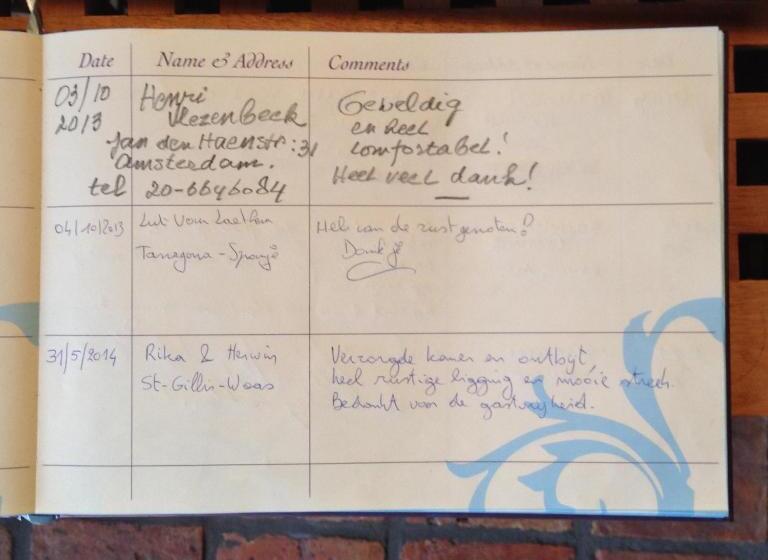 Date Name & Address Comments
03/10
2013
Henri
Vlezenbeek
Jan den Haenstr: 31
Amsterdam.
tel 20-6646084
Geweldig
en heel
comfortabel!
Heel veel dank!
04/10/2013
Tarragona - Spanje
Heb van de rust genoten!
Dank je
31/5/2014
Rika & Herwin
St-Gillis-Waas
Verzorgde kamer en ontbijt,
heel rustige ligging en mooie streek.
Bedankt voor de gastvrijheid.